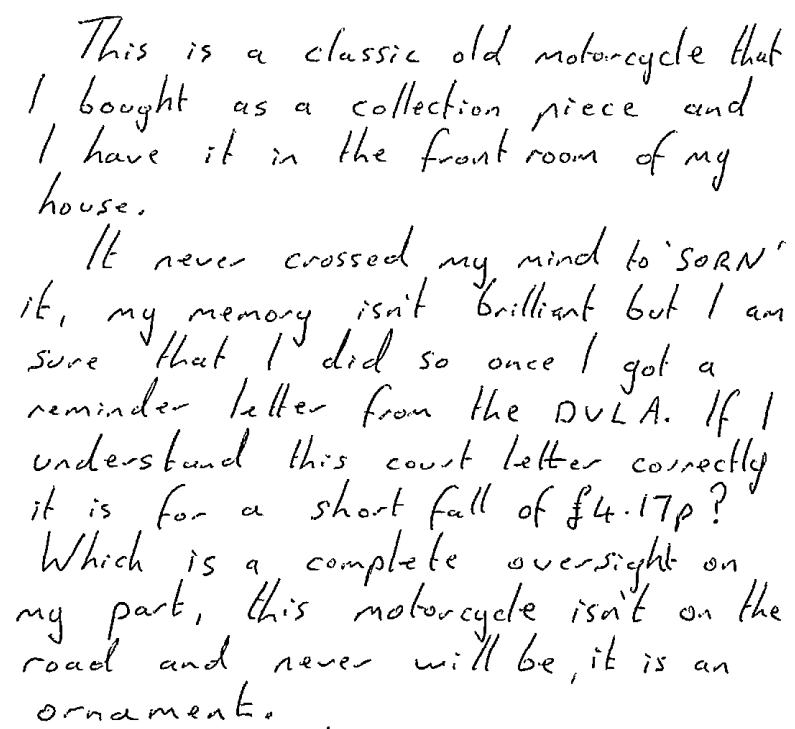 This is a classic old motorcycle that
I bought as a collection piece and
I have it in the front room of my
house.
It never crossed my mind to 'SORN'
it, my memory isn't brilliant but I am
sure that I did so once I got a
reminder letter from the DVLA. If I
understand this court letter correctly
it is for a short fall of £4.17p?
Which is a complete oversight on
my part, this motorcycle isn't on the
road and never will be, it is an
ornament.